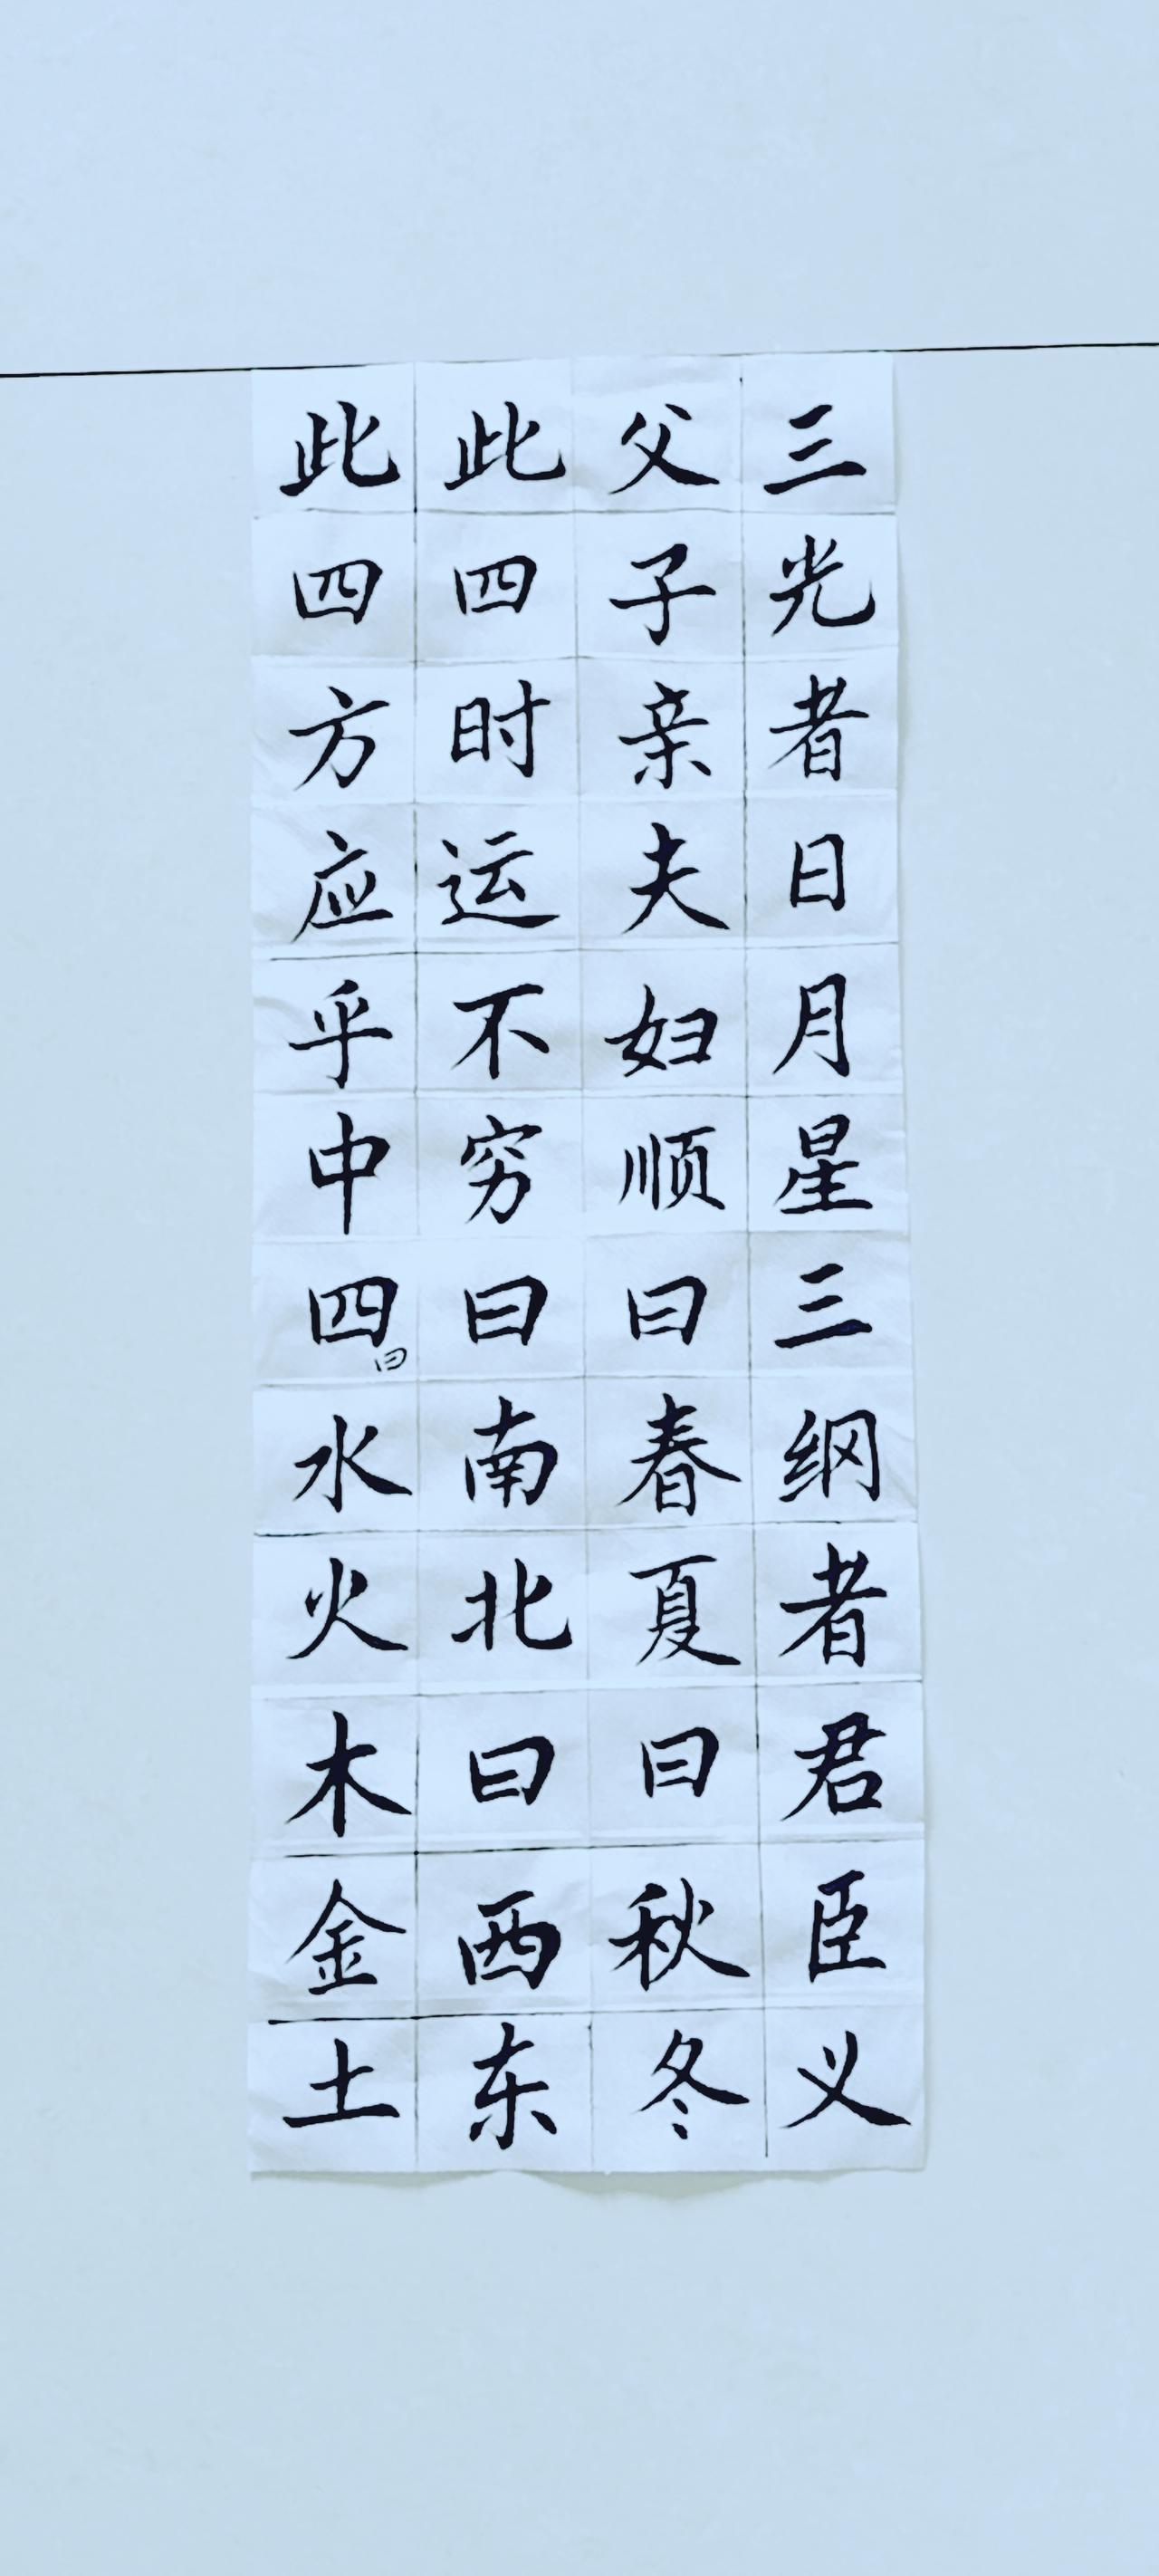 三光者日月星三纲者君臣义
父子亲夫妇顺曰春夏曰秋冬
此四时运不穷曰南北曰西东
此四方应乎中四曰水火木金土